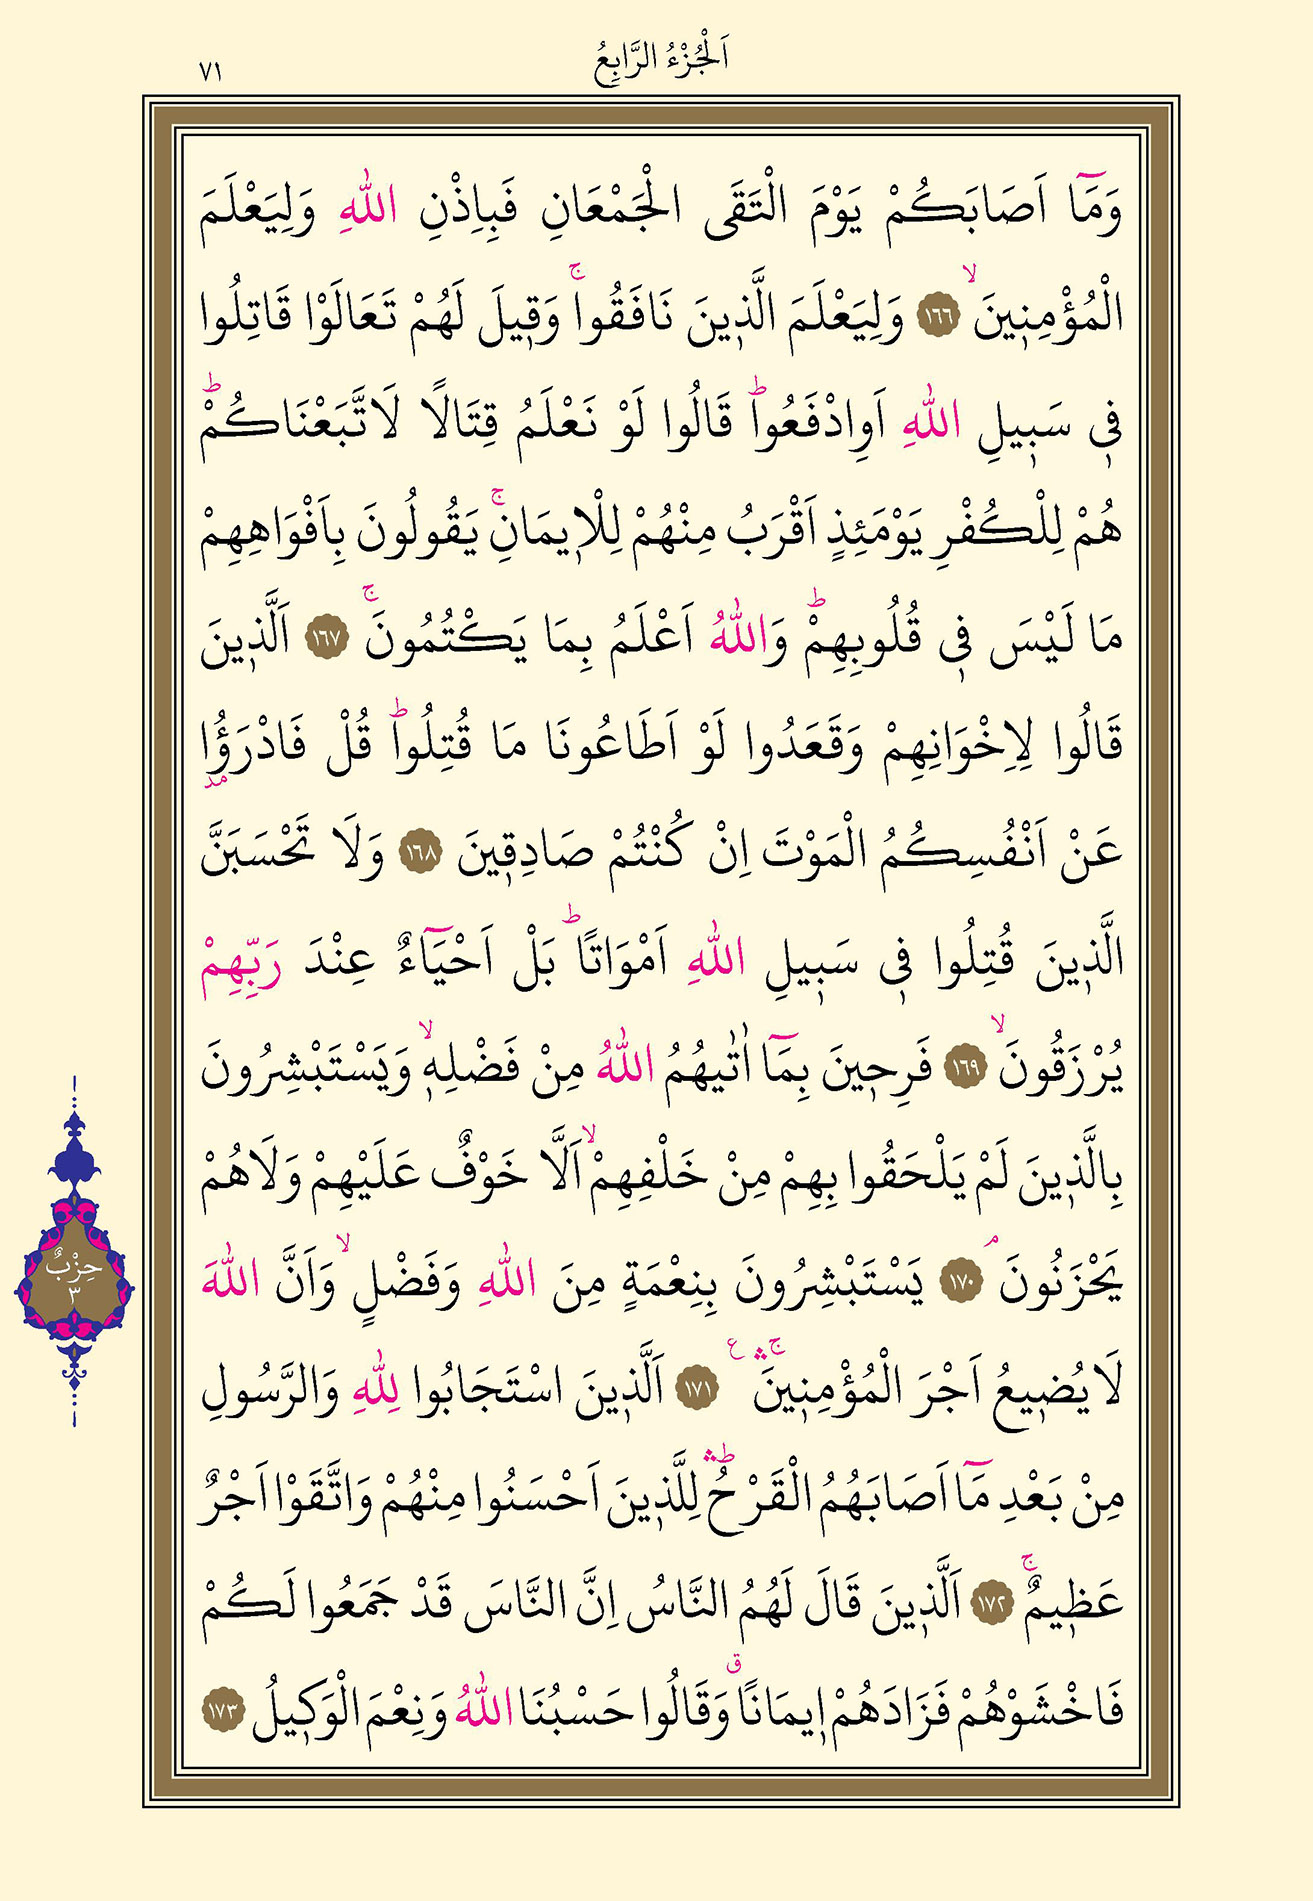 اَلْجُزْءُ الرَّابِعُ
٧١
وَمَٓا اَصَابَكُمْ يَوْمَ الْتَقَى الْجَمْعَانِ فَبِاِذْنِ اللّٰهِ وَلِيَعْلَمَ
الْمُؤْمِن۪ينَۙ ١٦٦ وَلِيَعْلَمَ الَّذ۪ينَ نَافَقُواۚ وَق۪يلَ لَهُمْ تَعَالَوْا قَاتِلُوا
ف۪ي سَب۪يلِ اللّٰهِ اَوِادْفَعُواۜ قَالُوا لَوْ نَعْلَمُ قِتَالًا لَاتَّبَعْنَاكُمْۜ
هُمْ لِلْكُفْرِ يَوْمَئِذٍ اَقْرَبُ مِنْهُمْ لِلْا۪يمَانِۚ يَقُولُونَ بِاَفْوَاهِهِمْ
مَا لَيْسَ ف۪ي قُلُوبِهِمْۜ وَاللّٰهُ اَعْلَمُ بِمَا يَكْتُمُونَۚ ١٦٧ اَلَّذ۪ينَ
قَالُوا لِاِخْوَانِهِمْ وَقَعَدُوا لَوْ اَطَاعُونَا مَا قُتِلُواۜ قُلْ فَادْرَؤُ۫ا
عَنْ اَنْفُسِكُمُ الْمَوْتَ اِنْ كُنْتُمْ صَادِق۪ينَ ١٦٨ وَلَا تَحْسَبَنَّ
الَّذ۪ينَ قُتِلُوا ف۪ي سَب۪يلِ اللّٰهِ اَمْوَاتًاۜ بَلْ اَحْيَٓاءٌ عِنْدَ رَبِّهِمْ
يُرْزَقُونَۙ ١٦٩ فَرِح۪ينَ بِمَٓا اٰتٰيهُمُ اللّٰهُ مِنْ فَضْلِه۪ۙ وَيَسْتَبْشِرُونَ
بِالَّذ۪ينَ لَمْ يَلْحَقُوا بِهِمْ مِنْ خَلْفِهِمْۙ اَلَّا خَوْفٌ عَلَيْهِمْ وَلَاهُمْ
يَحْزَنُونَۢ ١٧٠ يَسْتَبْشِرُونَ بِنِعْمَةٍ مِنَ اللّٰهِ وَفَضْلٍۙ وَاَنَّ اللّٰهَ
لَا يُض۪يعُ اَجْرَ الْمُؤْمِن۪ينَۚۛ ع ١٧١ اَلَّذ۪ينَ اسْتَجَابُوا لِلّٰهِ وَالرَّسُولِ
مِنْ بَعْدِ مَٓا اَصَابَهُمُ الْقَرْحُۜۛ لِلَّذ۪ينَ اَحْسَنُوا مِنْهُمْ وَاتَّقَوْا اَجْرٌ
عَظ۪يمٌۚ ١٧٢ اَلَّذ۪ينَ قَالَ لَهُمُ النَّاسُ اِنَّ النَّاسَ قَدْ جَمَعُوا لَكُمْ
فَاخْشَوْهُمْ فَزَادَهُمْ ا۪يمَانًاۗ وَقَالُوا حَسْبُنَا اللّٰهُ وَنِعْمَ الْوَك۪يلُ ١٧٣
حِزْبٌ
٣